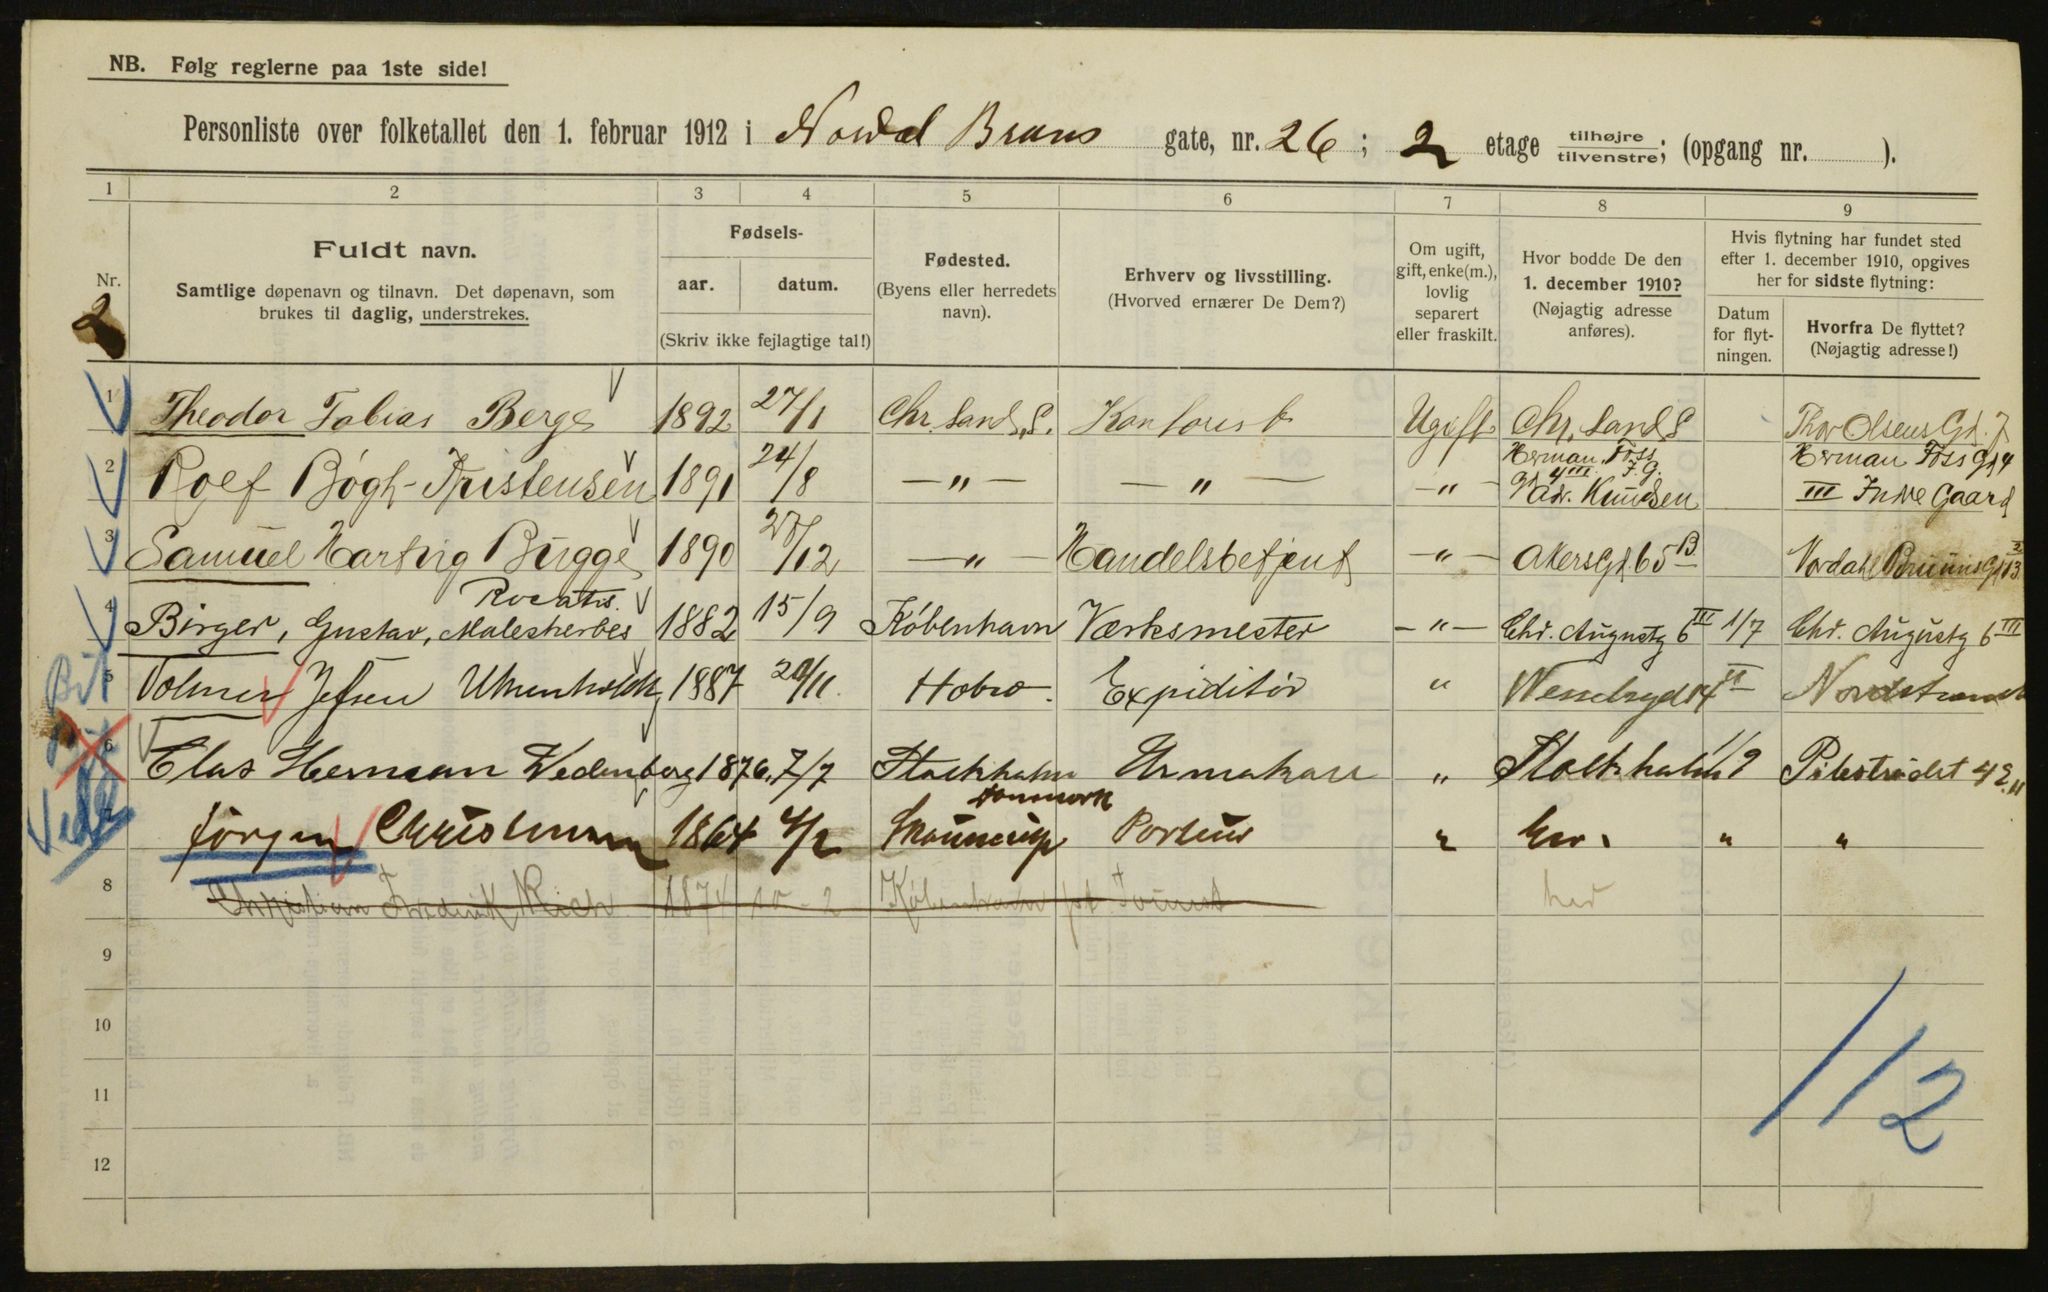 NB. Følg reglerne paa 1ste side!
Personliste over folketallet den 1. februar 1912 i Nordal Bruns gate, nr. 26; 2 etage tilhøjre/tilvenstre; (opgang nr. ).
1 2 3 4 5 6 7 8 9
Nr.
2
Fuldt navn.
Samtlige døpenavn og tilnavn. Det døpenavn, som
brukes til daglig, understrekes.
Fødsels-
aar. datum.
(Skriv ikke fejlagtige tal!)
Fødested.
(Byens eller herredets
navn).
Erhverv og livsstilling.
(Hvorved ernærer De Dem?)
Om ugift,
gift, enke(m.),
lovlig
separert
eller fraskilt.
Hvor bodde De den
1. december 1910?
(Nøjagtig adresse
anføres).
Hvis flytning har fundet sted
efter 1. december 1910, opgives
her for sidste flytning:
Datum
for flyt-
ningen.
Hvorfra De flyttet?
(Nøjagtig adresse!)
1 Theodor Tobias Berge 1892 27/1 Chr. Sand. S. Kontorist Ugift Chr. Sand S Thor Olsens Gd. 7
2 Rolf Bøgh-Kristensen 1891 24/8 —"— —"— —"— Herman Foss Gd 4 III I. G. Adr. Knudsen Herman Foss Gd 4 III Indre Gaard
3 Samuel Hartvig Bugge 1890 28/12 —"— Handelsbetjent —"— AkersGd. 65 B Nordahl Bruuns Gd 13
4 Birger, Gustav, Malesherbes 1882 15/9 København Værksmester —"— Chr. Augustg 6 III 1/7 Chr. Augustg 6 III
5 Volmer Jessen 1887 20/11. Hobro. Expiditør " Wesselsgd 14 II Nordstrand
6 Clas Herman Wedenberg 1876. 7/7 Stockholm Urmakare " Stockholm 1/9 Pilestrædet
7 Jørgen Christensen 1864 4/2 Danmark " her. " "
8 Christian Fredrik 1874 10-2 København Tourist her
9
10
11
12
112